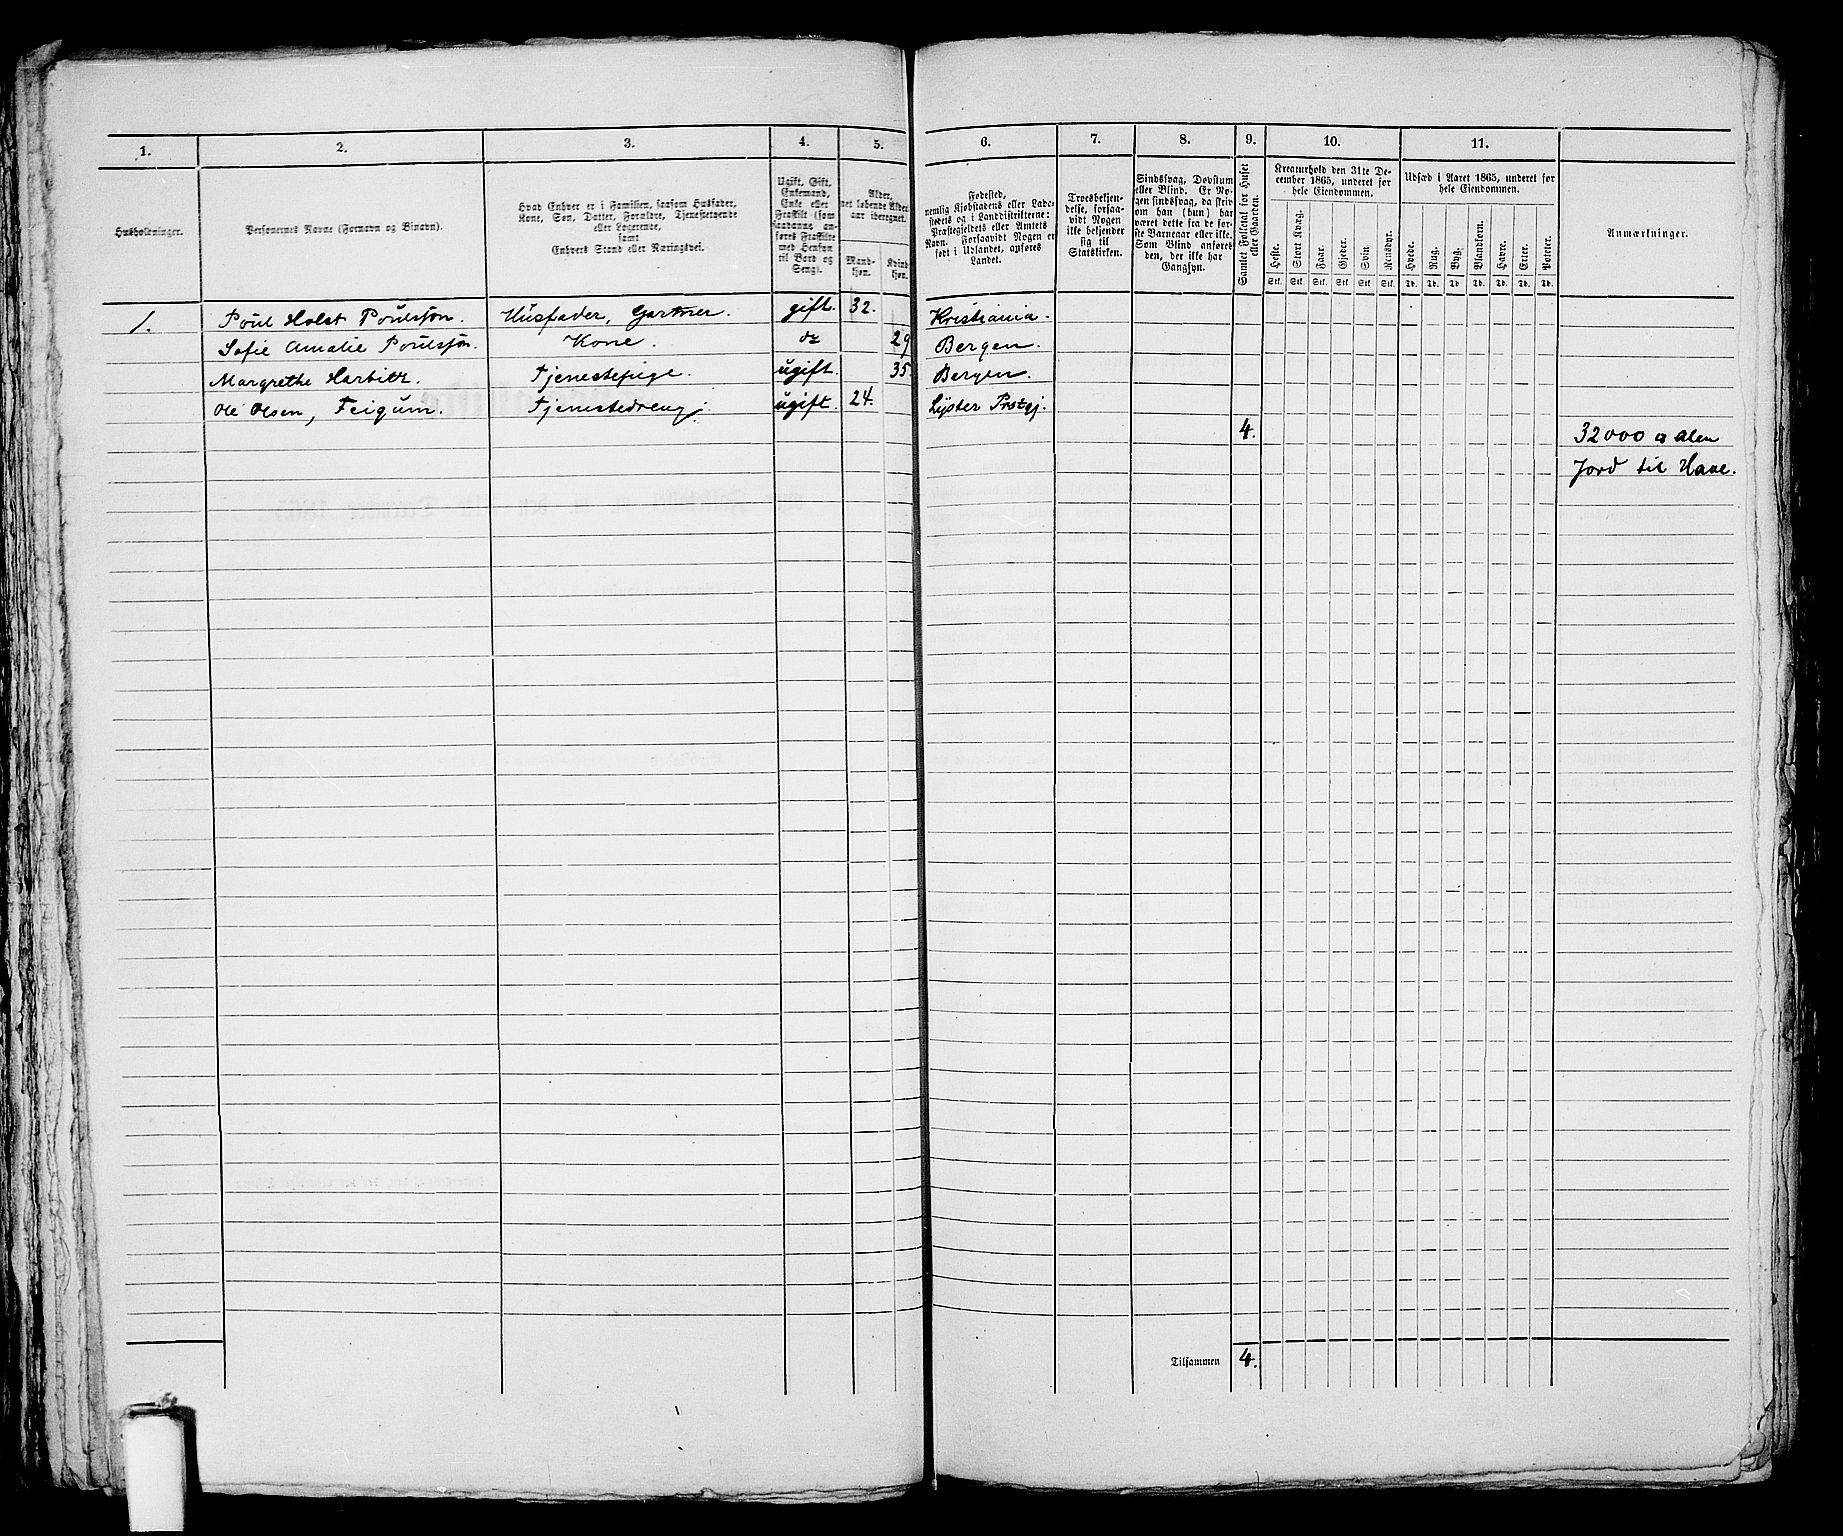 1. 2. 3. 4. 5. 6. 7. 8. 9. 10. 11.
Husholdninger.
Personernes Navne (Fornavn og Binavn).
Hvad Enhver er i Familien, saasom Husfader,
Kone, Søn, Datter, Forældre, Tjenestetyende
eller Logerende,
samt
Enhvers Stand eller Næringsvei.
Ugift, Gift,
Enkemand,
Enke eller
Fraskilt (som
saadanne anføres Fraskilte
med Hensyn
til Bord og
Seng).
Alder,
det løbende Alders-
aar iberegnet.
Mand-
kjøn.
Kvind-
kjøn.
Fødested,
nemlig Kjøbstadens eller Lade-
stedets og i Landdistrikterne:
Præstegjeldets eller Amtets
Navn. Forsaavidt Nogen er
født i Udlandet, anføres
Landet.
Troesbekjen-
delse, forsaa-
vidt Nogen
ikke bekjender
sig til
Statskirken.
Sindssvag, Døvstum
eller Blind. Er No-
gen sindssvag, da skriv
om han (hun) har
været dette fra de før-
ste Barneaar eller ikke.
Som Blind anføres
den, der ikke har
Gangsyn.
Samlet Folketal for Huset
eller Gaarden.
Kreaturhold den 31te De-
cember 1865, underet for
hele Eiendommen.
Heste. Stort Kvæg. Faar. Gjeder. Svin. Rensdyr.
Stk. Stk. Stk. Stk. Stk. Stk.
Udsæd i Aaret 1865, underet for
hele Eiendommen.
Hvede. Rug. Byg. Blandkorn. Havre. Erter. Poteter.
Td. Td. Td. Td. Td. Td. Td.
Anmærkninger.
1. Poul Holst Poulssøn. Husfader, Gartner. gift. 32. Kristiania.
Sofie Amalie Poulssøn. Kone. do 29 Bergen.
Margrethe Harbitz. Tjenestepige. ugift. 35. Bergen.
Ole Olsen, Feigum. Tjenestedreng. ugift. 24. Lyster Prstgj.
4. 32000 □ Alen
Jord til Have.
Tilsammen 4.